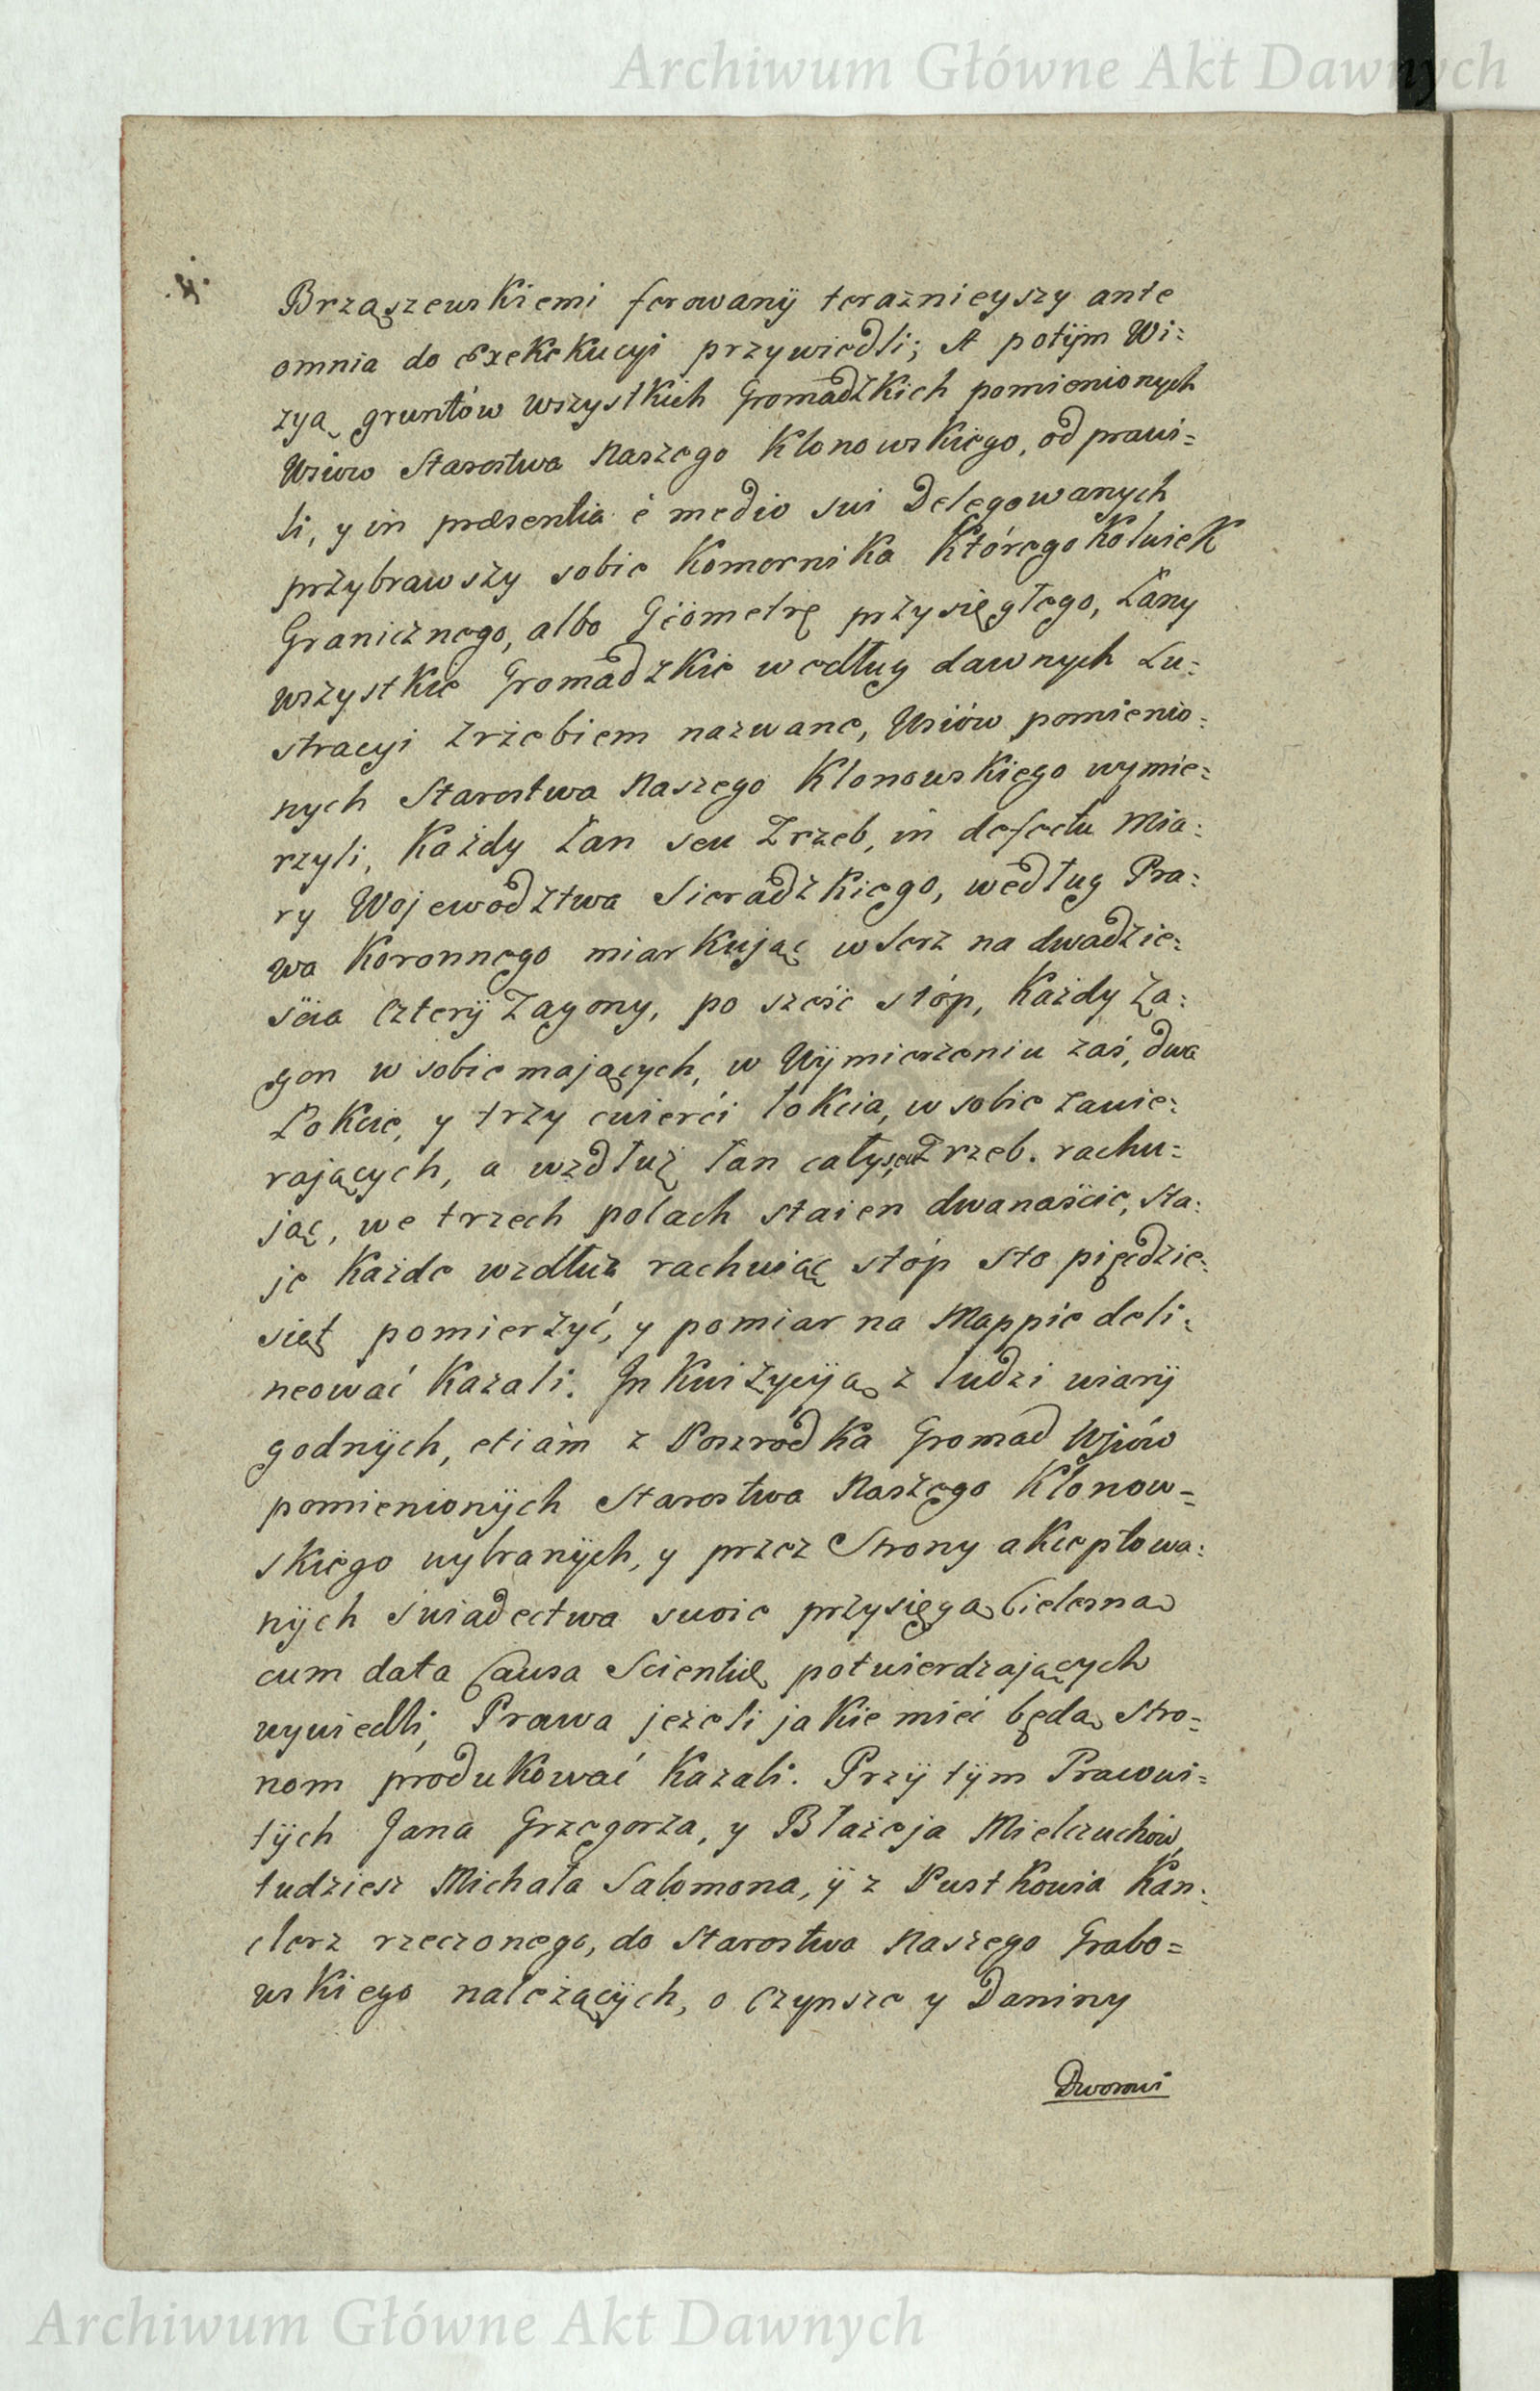 Archiwum Główne Akt Dawnych
.4.
Brząszewskiemi ferowanÿ teraznieyszy ante
omnia do Exekekucyi przywiedli; A potÿm Wi:
zyą gruntów wszystkich Gromadzkich pomienionych
Wsiow Starostwa Naszego Klonowskiego, odprawi=
li, y in præsentia é medio sui Delegowanych
przybrawszy sobie Komornika Któregokolwiek
Granicznego, albo Geometrę przysięgłego, Łany
wszystkie Gromadzkie według dawnych Lu:
stracyi Zrzebiem nazwane, Wsiów pomienio:
nych Starostwa Naszego Klonowskiego wymie:
rzyli, Każdy Łan seu Zrzeb, in defectu Mia:
ry Województwa Sieradzkiego, według Pra:
wa Koronnego miarkując wszerz na dwadzie:
ścia Czterÿ Zagony, po sześć stóp, Każdy Za:
gon w sobie mających, w Wÿmierzeniu zaś, dwa
Łokcie, y trzy cwierći łokcia, w sobie zawie:
rających, a wzdłuż Łan cały seu Zrzeb. rachu:
jąc, we trzech polach staien dwanaście, sta:
je Każde wzdłuż rachuiąc stóp sto pięćdzie:
siąt pomierzyć, y pomiar na Mappie deli:
neować Kazali. Inkwizycÿą z ludzi wiarÿ
godnÿch, etiàm z Poszrodka Gromad Wsiów
pomienionÿch Starostwa Naszego Klonow=
skiego wybranÿch, y przez Strony akceptowa:
nÿch świadectwa swoie przysięgą Cielesną
cum data Causa Scientiæ potwierdzających
wywiedli, Prawa jeżeli jakie mieć będą Stro=
nom produkować Kazali. Przÿ tÿm Prawowi=
tÿch Jana Grzegorza, y Błażeja Mielczuchów,
tudziesz Michała Salomona, ÿ z Pustkowia Kan:
clerz rzeczonego, do Starostwa Naszego Grabo=
wskiego należącÿch, o Czynsze y Daniny
Dworowi
Archiwum Główne Akt Dawnych